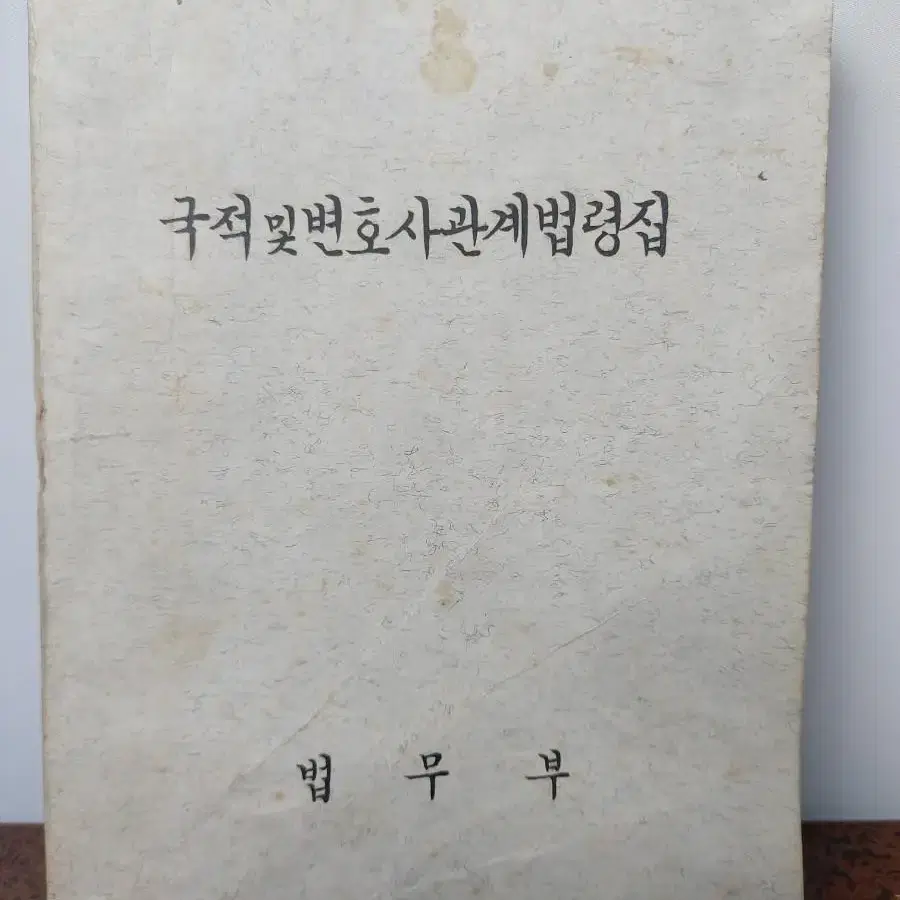 국적및변호사관계법령집
법 무 부